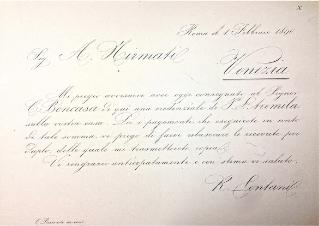 X
Roma li 1 Febbraio 1896
Sig. A. Nirmati
Venezia
Mi pregio avvisarvi aver oggi consegnato al Signor
C. Boncasa di qui una credenziale di
sulla vostra casa. Dei pagamenti che eseguirete in conto
di tale somma, vi prego di farvi rilasciare le ricevute per
duplo, delle quali me trasmetterete copia.
Vi ringrazio anticipatamente e con stima vi saluto.